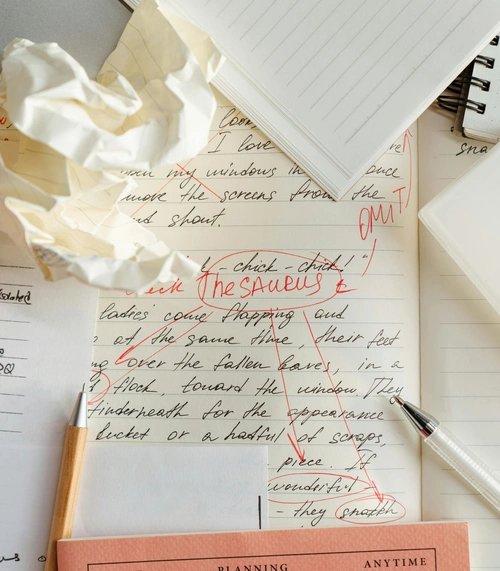 look
I love
my windows in once
move the screens from the
and shout.
OMIT
- chick - chick! "
Thesaurus
ladies come flapping and
at the same time, their feet
over the fallen leaves, in a
flock, toward the window. They
underneath for the appearance
bucket or a hatful of scraps,
piece. If
wonderful -
- they snatch
sna
PLANNING ANYTIME